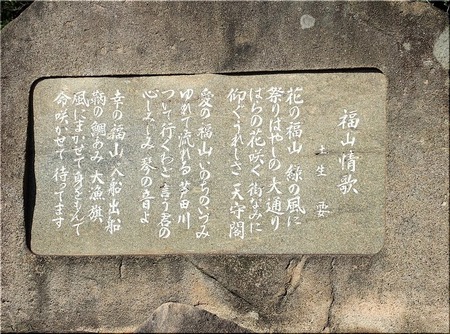 福山情歌
土生 要
花の福山 緑の風に
祭りばやしの 大通り
ばらの花咲く 街なみに
仰ぐうれしさ 天守閣
愛の福山 いのちのいづみ
ゆれて流れる 芦田川
ついて行くわと 言う君の
心にしみる 琴の音よ
幸の福山 入船出船
鞆の鯛あみ 大漁旗
風にまかせて 身をもんで
命咲かせて 待ってます